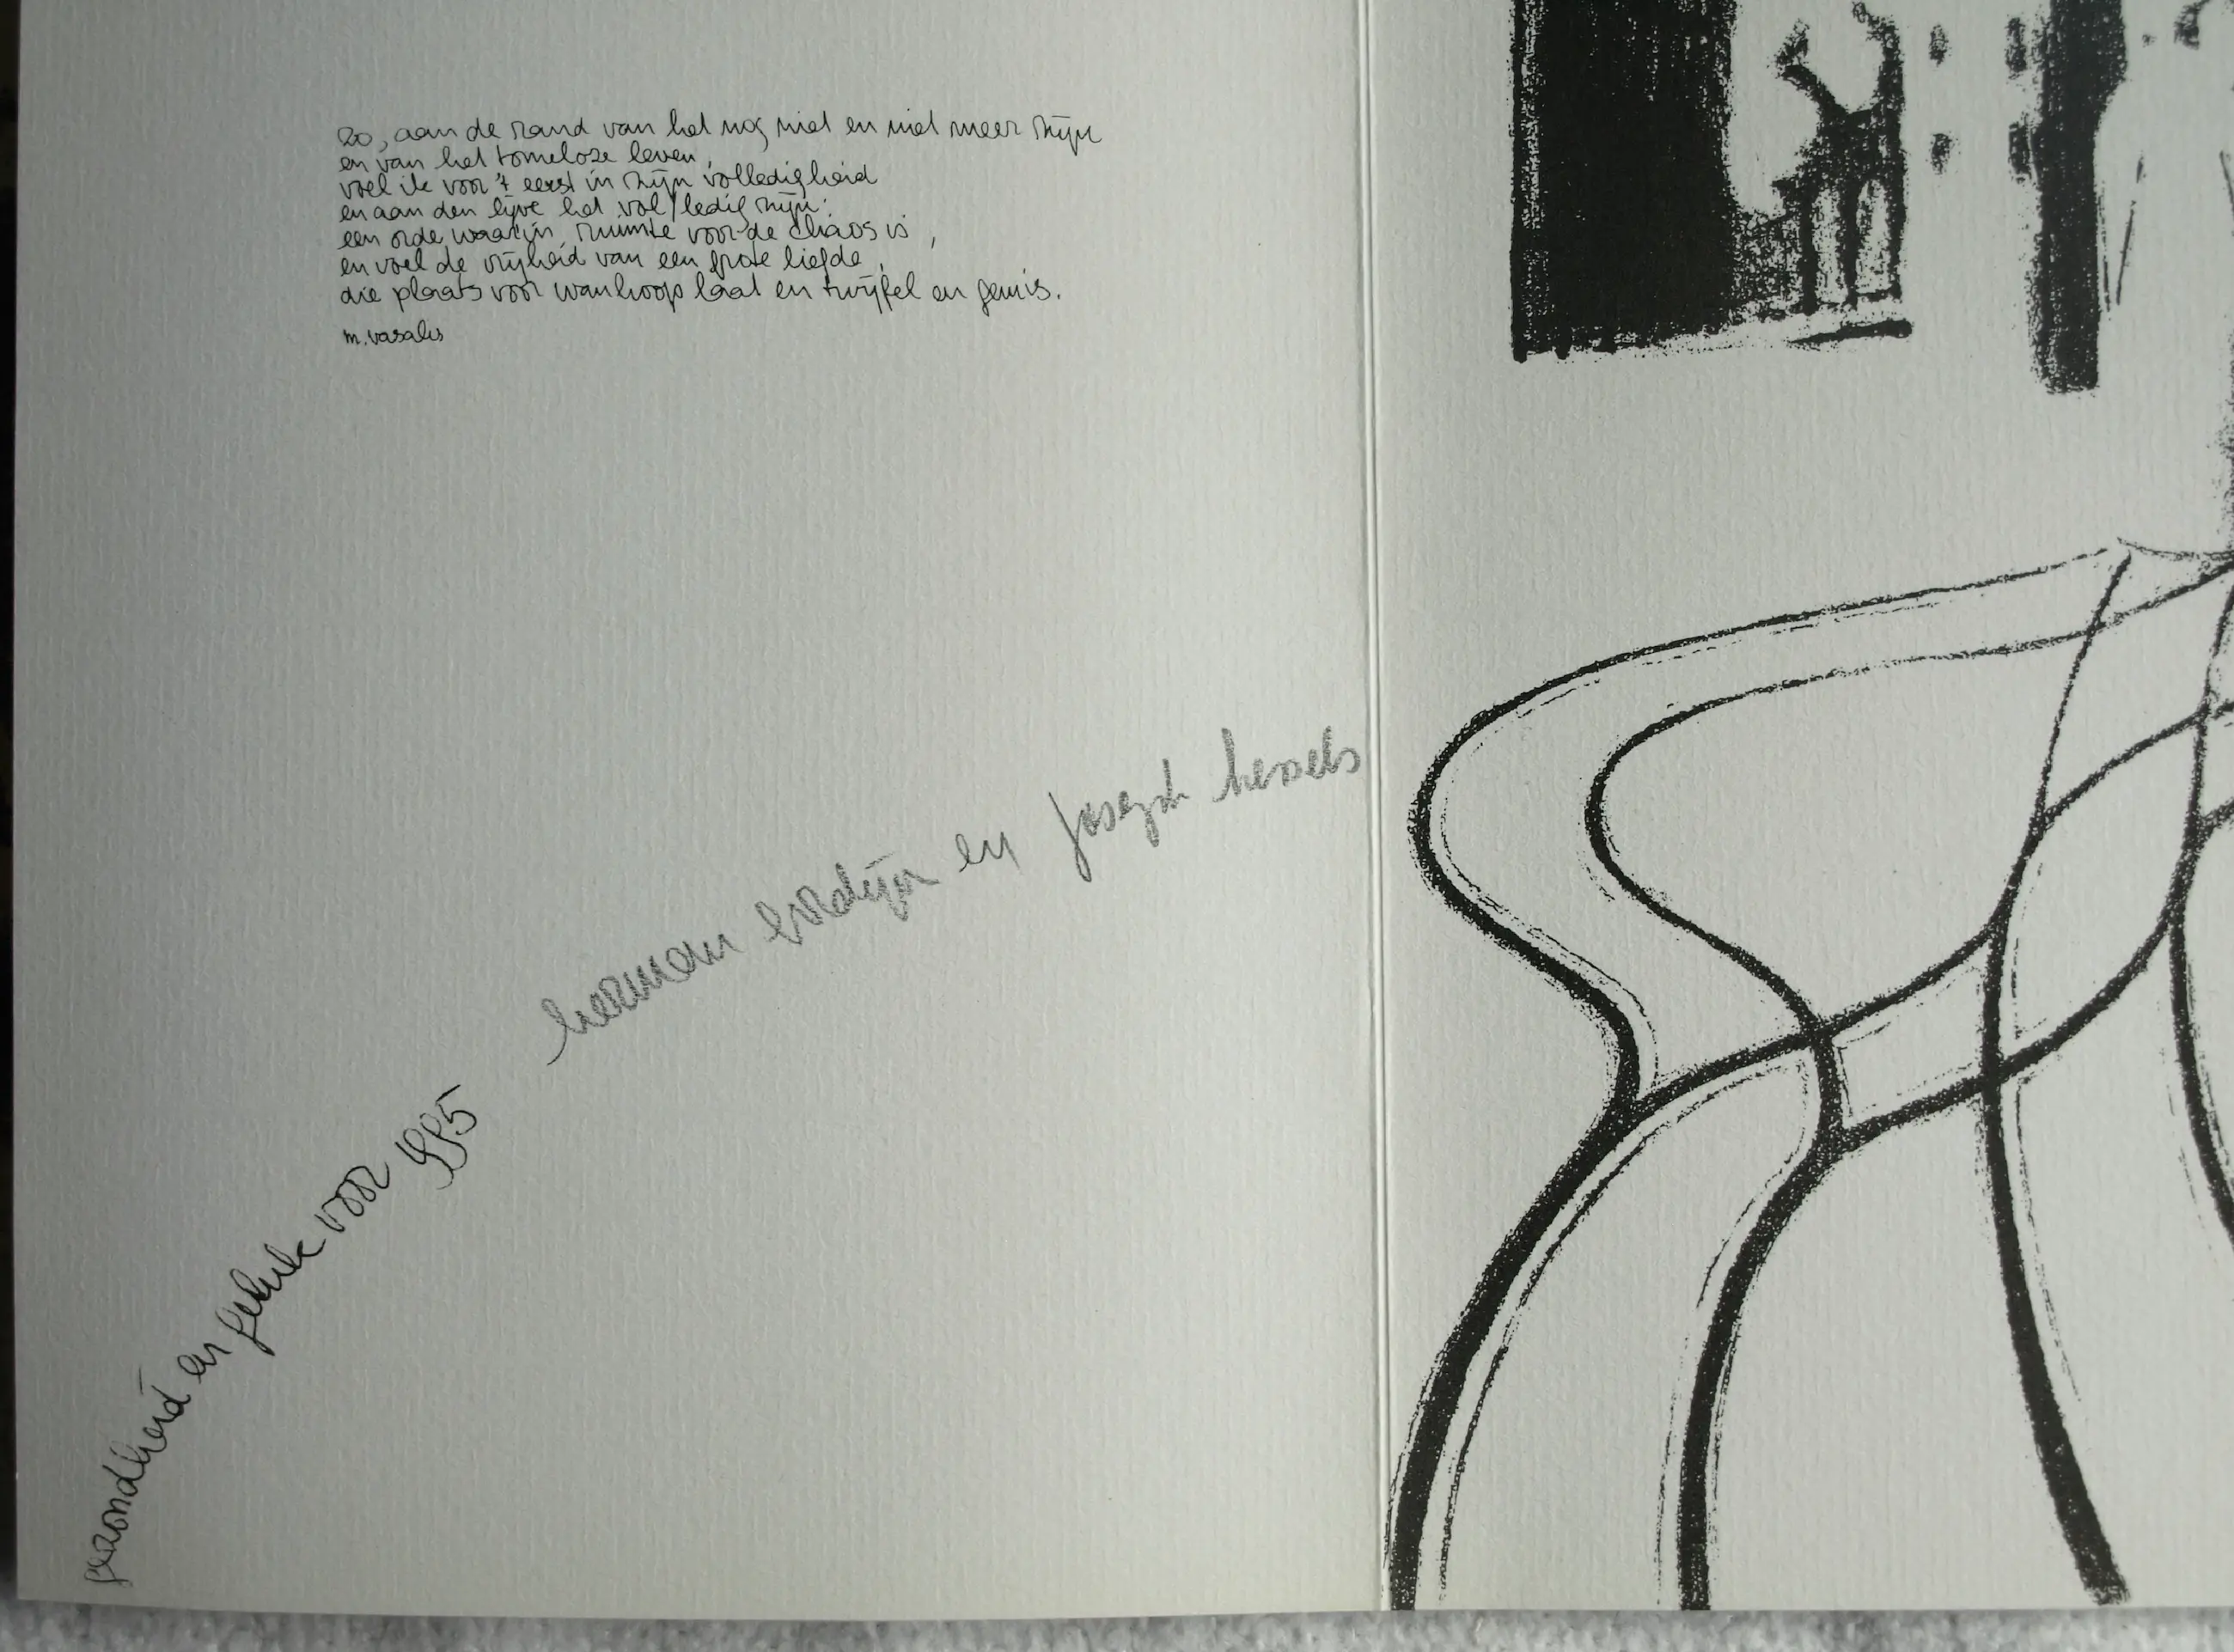 zo, aan de rand van het nog niet en niet meer zijn
en van het tomeloze leven,
voel ik voor 't eerst in zijn volledigheid
en aan den lijve het vol/ledig zijn:
een orde, waarin ruimte voor de chaos is,
en voel de vrijheid van een grote liefde,
die plaats voor wanhoop laat en twijfel en gemis.
m. vasalis
gezondheid en geluk voor 1995 herman en joseph hessels